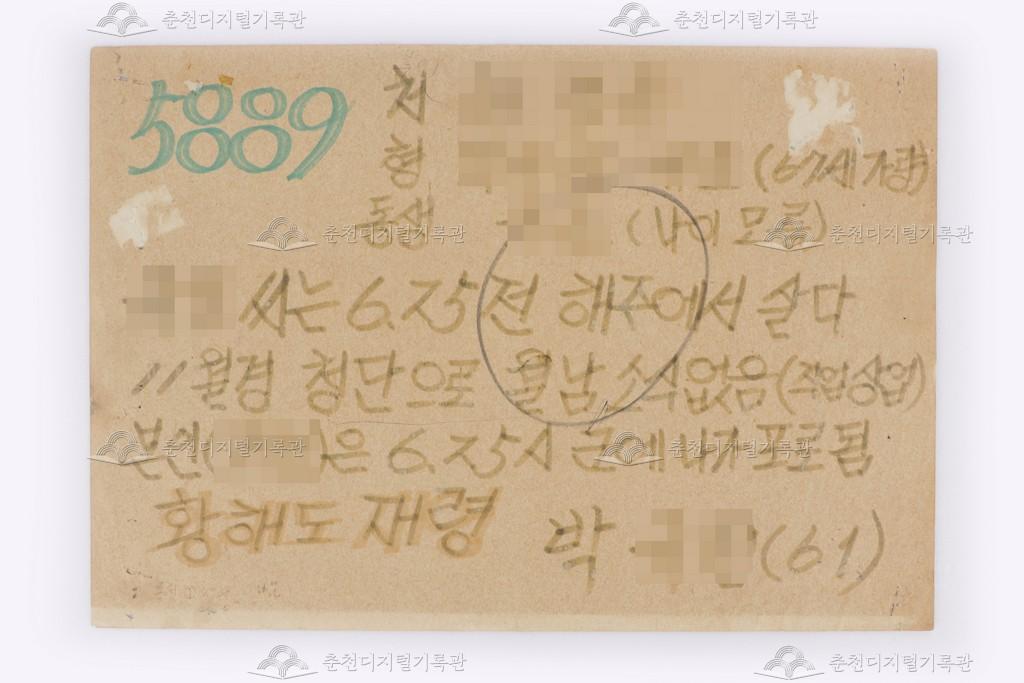 춘천디지털기록관 춘천디지털기록관
5889
처
형 (67세가량)
동생 (나이 모름)
춘천디지털기록관 춘천디지털기록관
씨는 6.25 전 해주에서 살다
11월경 청단으로 월남 소식없음(직업상업)
본인( )은 6.25시 포로됨
춘천디지털기록관 춘천디지털기록관
황해도 재령 박 (61)
춘천디지털기록관 춘천디지털기록관